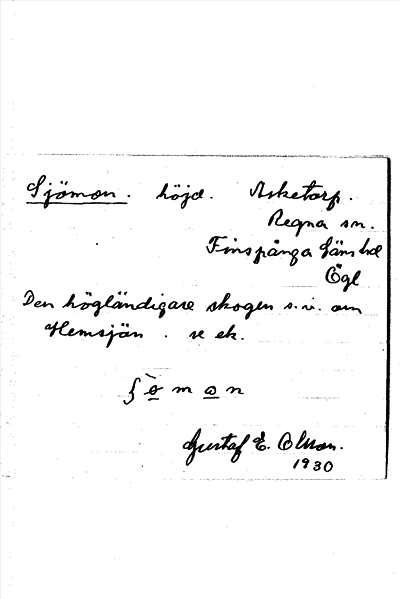 Sjömon. höjd. Asketorp.
Regna sn.
Finspånga läns hd
Ögl
Den högländigare skogen s.v. om
Hemsjön. se ek.
ʃ ò m o n
Gustaf E. Olsson.
1930